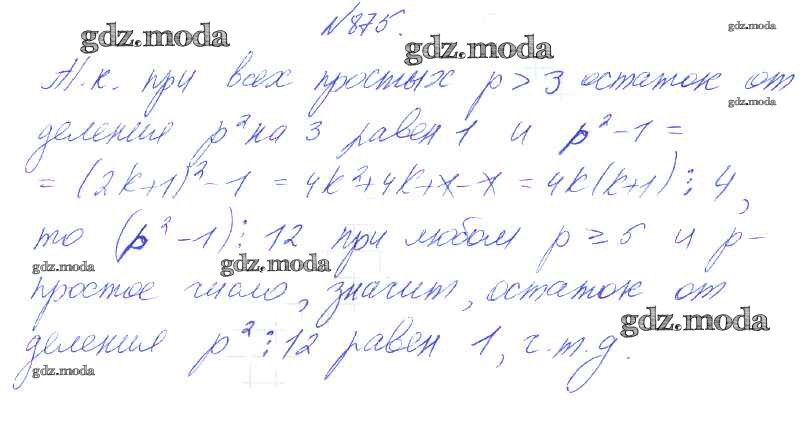 №875.
gdz.moda
gdz.moda
gdz.moda
Т.к. при всех простых p > 3 остаток от
gdz.moda
деления p² на 3 равен 1 и p² - 1 =
= (2k+1)² - 1 = 4k² + 4k + 1 - 1 = 4k(k+1) ⋮ 4,
то (p² - 1) ⋮ 12 при любом p ≥ 5 и p -
gdz.moda
gdz.moda
простое число, значит, остаток от
gdz.moda
деления p² ⋮ 12 равен 1, ч.т.д.
gdz.moda